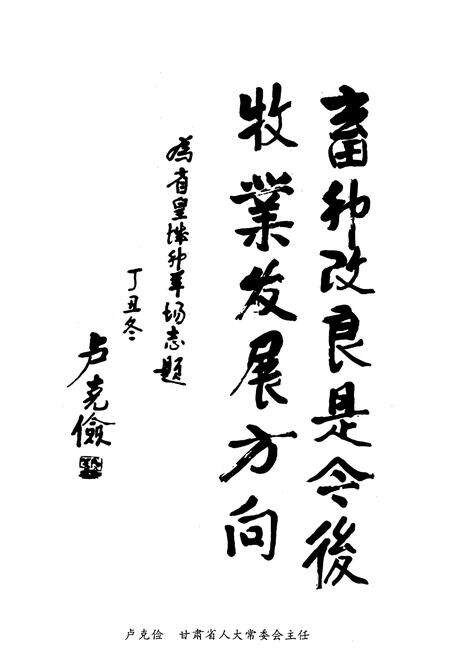 畜种改良是今後
牧業发展方向
為省皇城种羊场志题
丁丑冬
卢克儉
卢克俭 甘肃省人大常委会主任